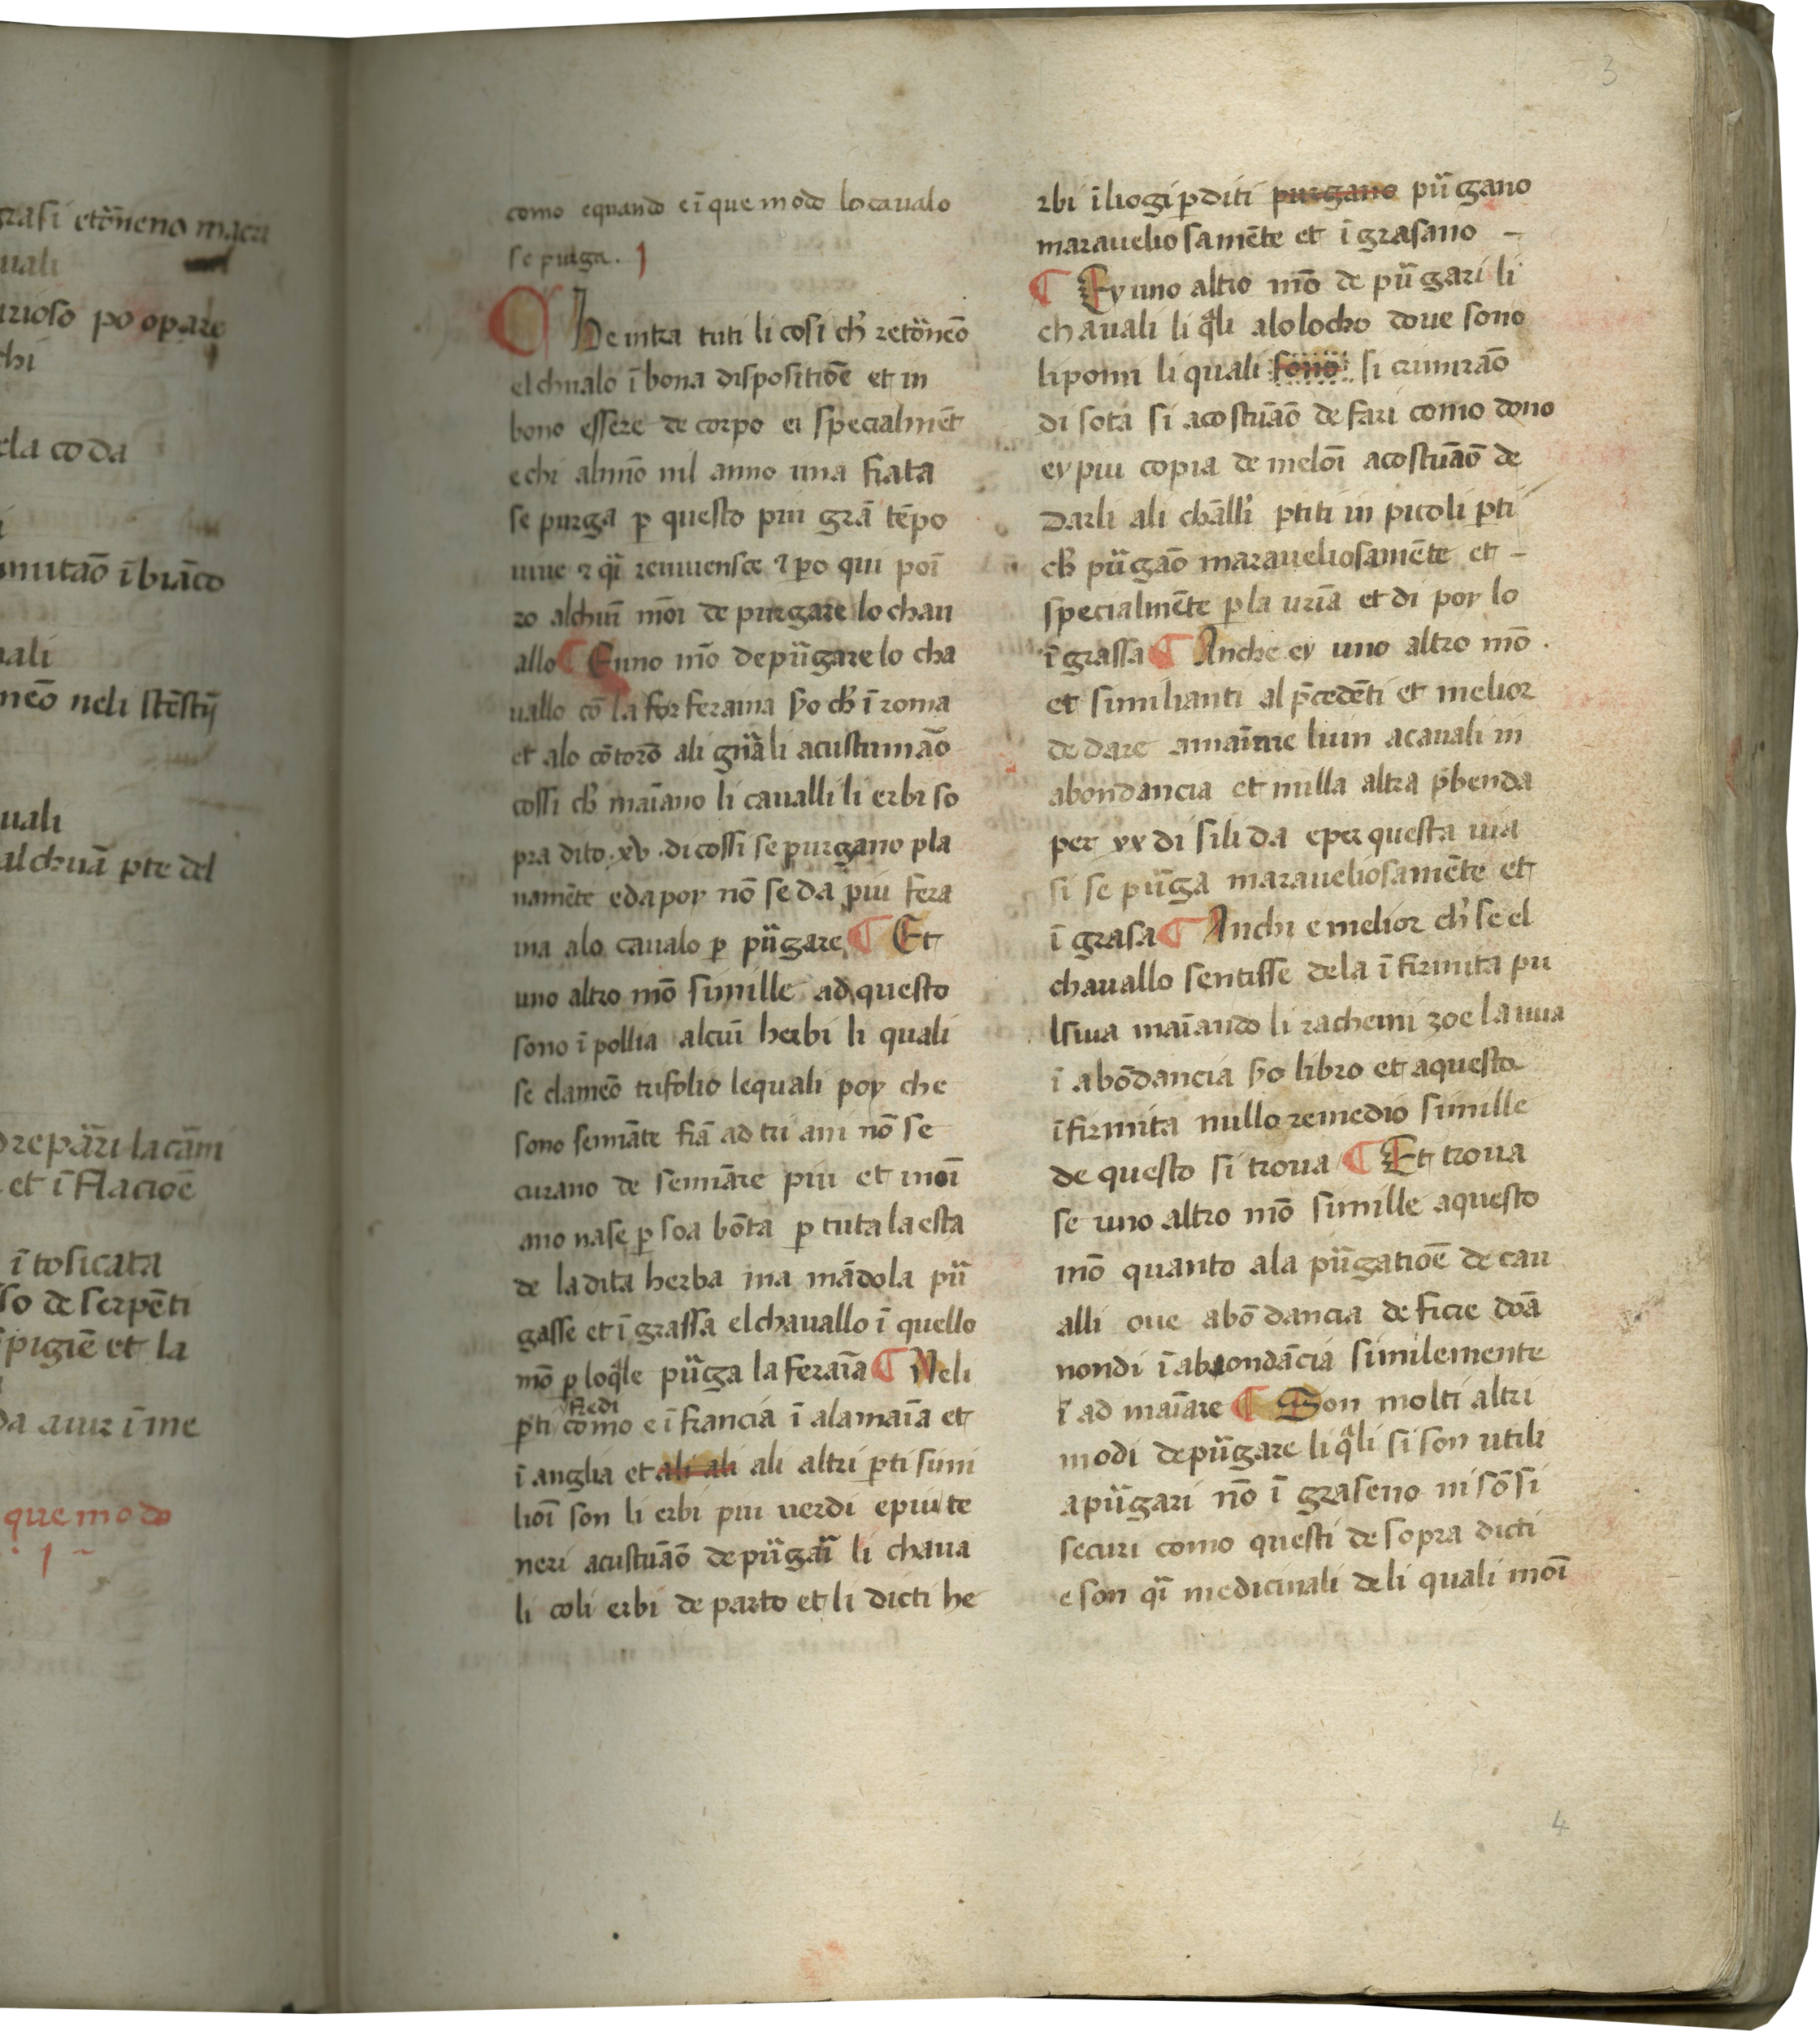 grasi et cōneno macri
uali
urioso po opare
chi
ela coda
i
mutāo ī biāco
uali
neō neli stēstij
uali
alchuā pte del
drepāri la cāmi
et ī flacioē
ī tosicata
sso de serpēti
pigiē et la
da aiur ī me
que modo
. 1 ~
como e quando e ī que modo lo cavalo
se purga. 1
CHe intra tuti li cosi ch' retōneō
el chualo ī bona dispositiōe et in
bono essere de corpo ei specialmēt
e chi almō nil anno una fiata
se purga p questo piu grā tēpo
uiue ⁊ qī reiuuensce ⁊ po qui poī
ro alchuī moī de purgare lo chau
allo ¶ E uno mō de pūgare lo cha
uallo cō la for feraina ṽo ch' ī roma
et alo cōtorō ali gnāli acustumāo
cossi ch' maīano li cavalli li erbi so
pra dito .xv. di cossi se purgano pla
namēte e da poy nō se da piu fera
ina alo cavalo p pūgare ¶ Et
uno altro mō simille ad questo
sono ī pollia alcuī herbi li quali
se clameō trifolio le quali poy che
sono semnāte fiā ad tri ani nō se
curano de semnāre piu et in oī
ano nase p soa bōta p tuta la esta
de la dita herba ma māđola pū
gasse et ī grassa el chauallo ī quello
mō p lo qle pūga la feraīa ¶ Neli
fredi
pti como e ī francia ī alamaīa et
ī anglia et ali ali ali altri pti simi
lioī son li erbi piu uerdi e piu te
neri acustuāō de pūgaī li chaua
li coli erbi de parto et li dicti he
rbi ī liogi pditi purgano pūgano
marauelio samēte et ī grasano –
¶ Ey uno altro mō de pūgari li
chauali li qli alo locho doue sono
li pomi li quali sono si crimrāo
di sota si acostuāō de fari como dono
ey piu copia de meloī acostuāō de
darli ali chālli ptiti in picoli pti
ch' pūgāo maraueliosamēte et –
specialmēte p la urīa et di poy lo
ī grassa ¶ Anche ey uno altro mō .
et similianti al pcedēti et melior
de dare amaīare liuin a cauali in
abondancia et nulla altra pbenda
per xx di sili da e per questa uia
si se pūga maraueliosamēte et
ī grasa ¶ Anchi e melior ch' se el
chauallo sentisse dela ī firmita pu
lsiua maīando li rachemi zoe la uua
ī abōdancia ṽo libro et aquesta
īfirmita nullo remedio simille
de questo si troua ¶ Et troua
se uno altro mō simille aquesto
mō quanto ala pūgatioē de cau
alli oue abō dancia de ficie doā
nondi ī abbondācia similemente
ī ad maīare ¶ Son molti altri
modi de pūgare li qli si son utili
a pūgari nō ī graseno ni sō sī
securi como questi de sopra dicti
e son qī medicinali deli quali moī
3
4